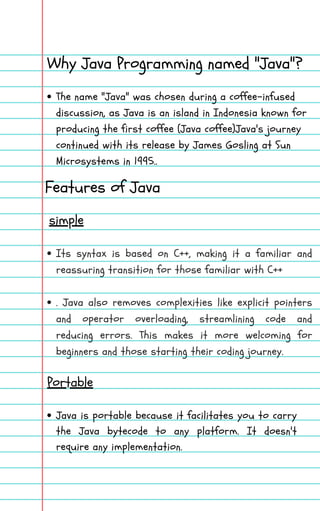 Why Java Programming named "Java"?
• The name "Java" was chosen during a coffee-infused
discussion, as Java is an island in Indonesia known for
producing the first coffee (Java coffee)Java's journey
continued with its release by James Gosling at Sun
Microsystems in 1995..
Features of Java
simple
• Its syntax is based on C++, making it a familiar and
reassuring transition for those familiar with C++
• . Java also removes complexities like explicit pointers
and operator overloading, streamlining code and
reducing errors. This makes it more welcoming for
beginners and those starting their coding journey.
Portable
• Java is portable because it facilitates you to carry
the Java bytecode to any platform. It doesn't
require any implementation.